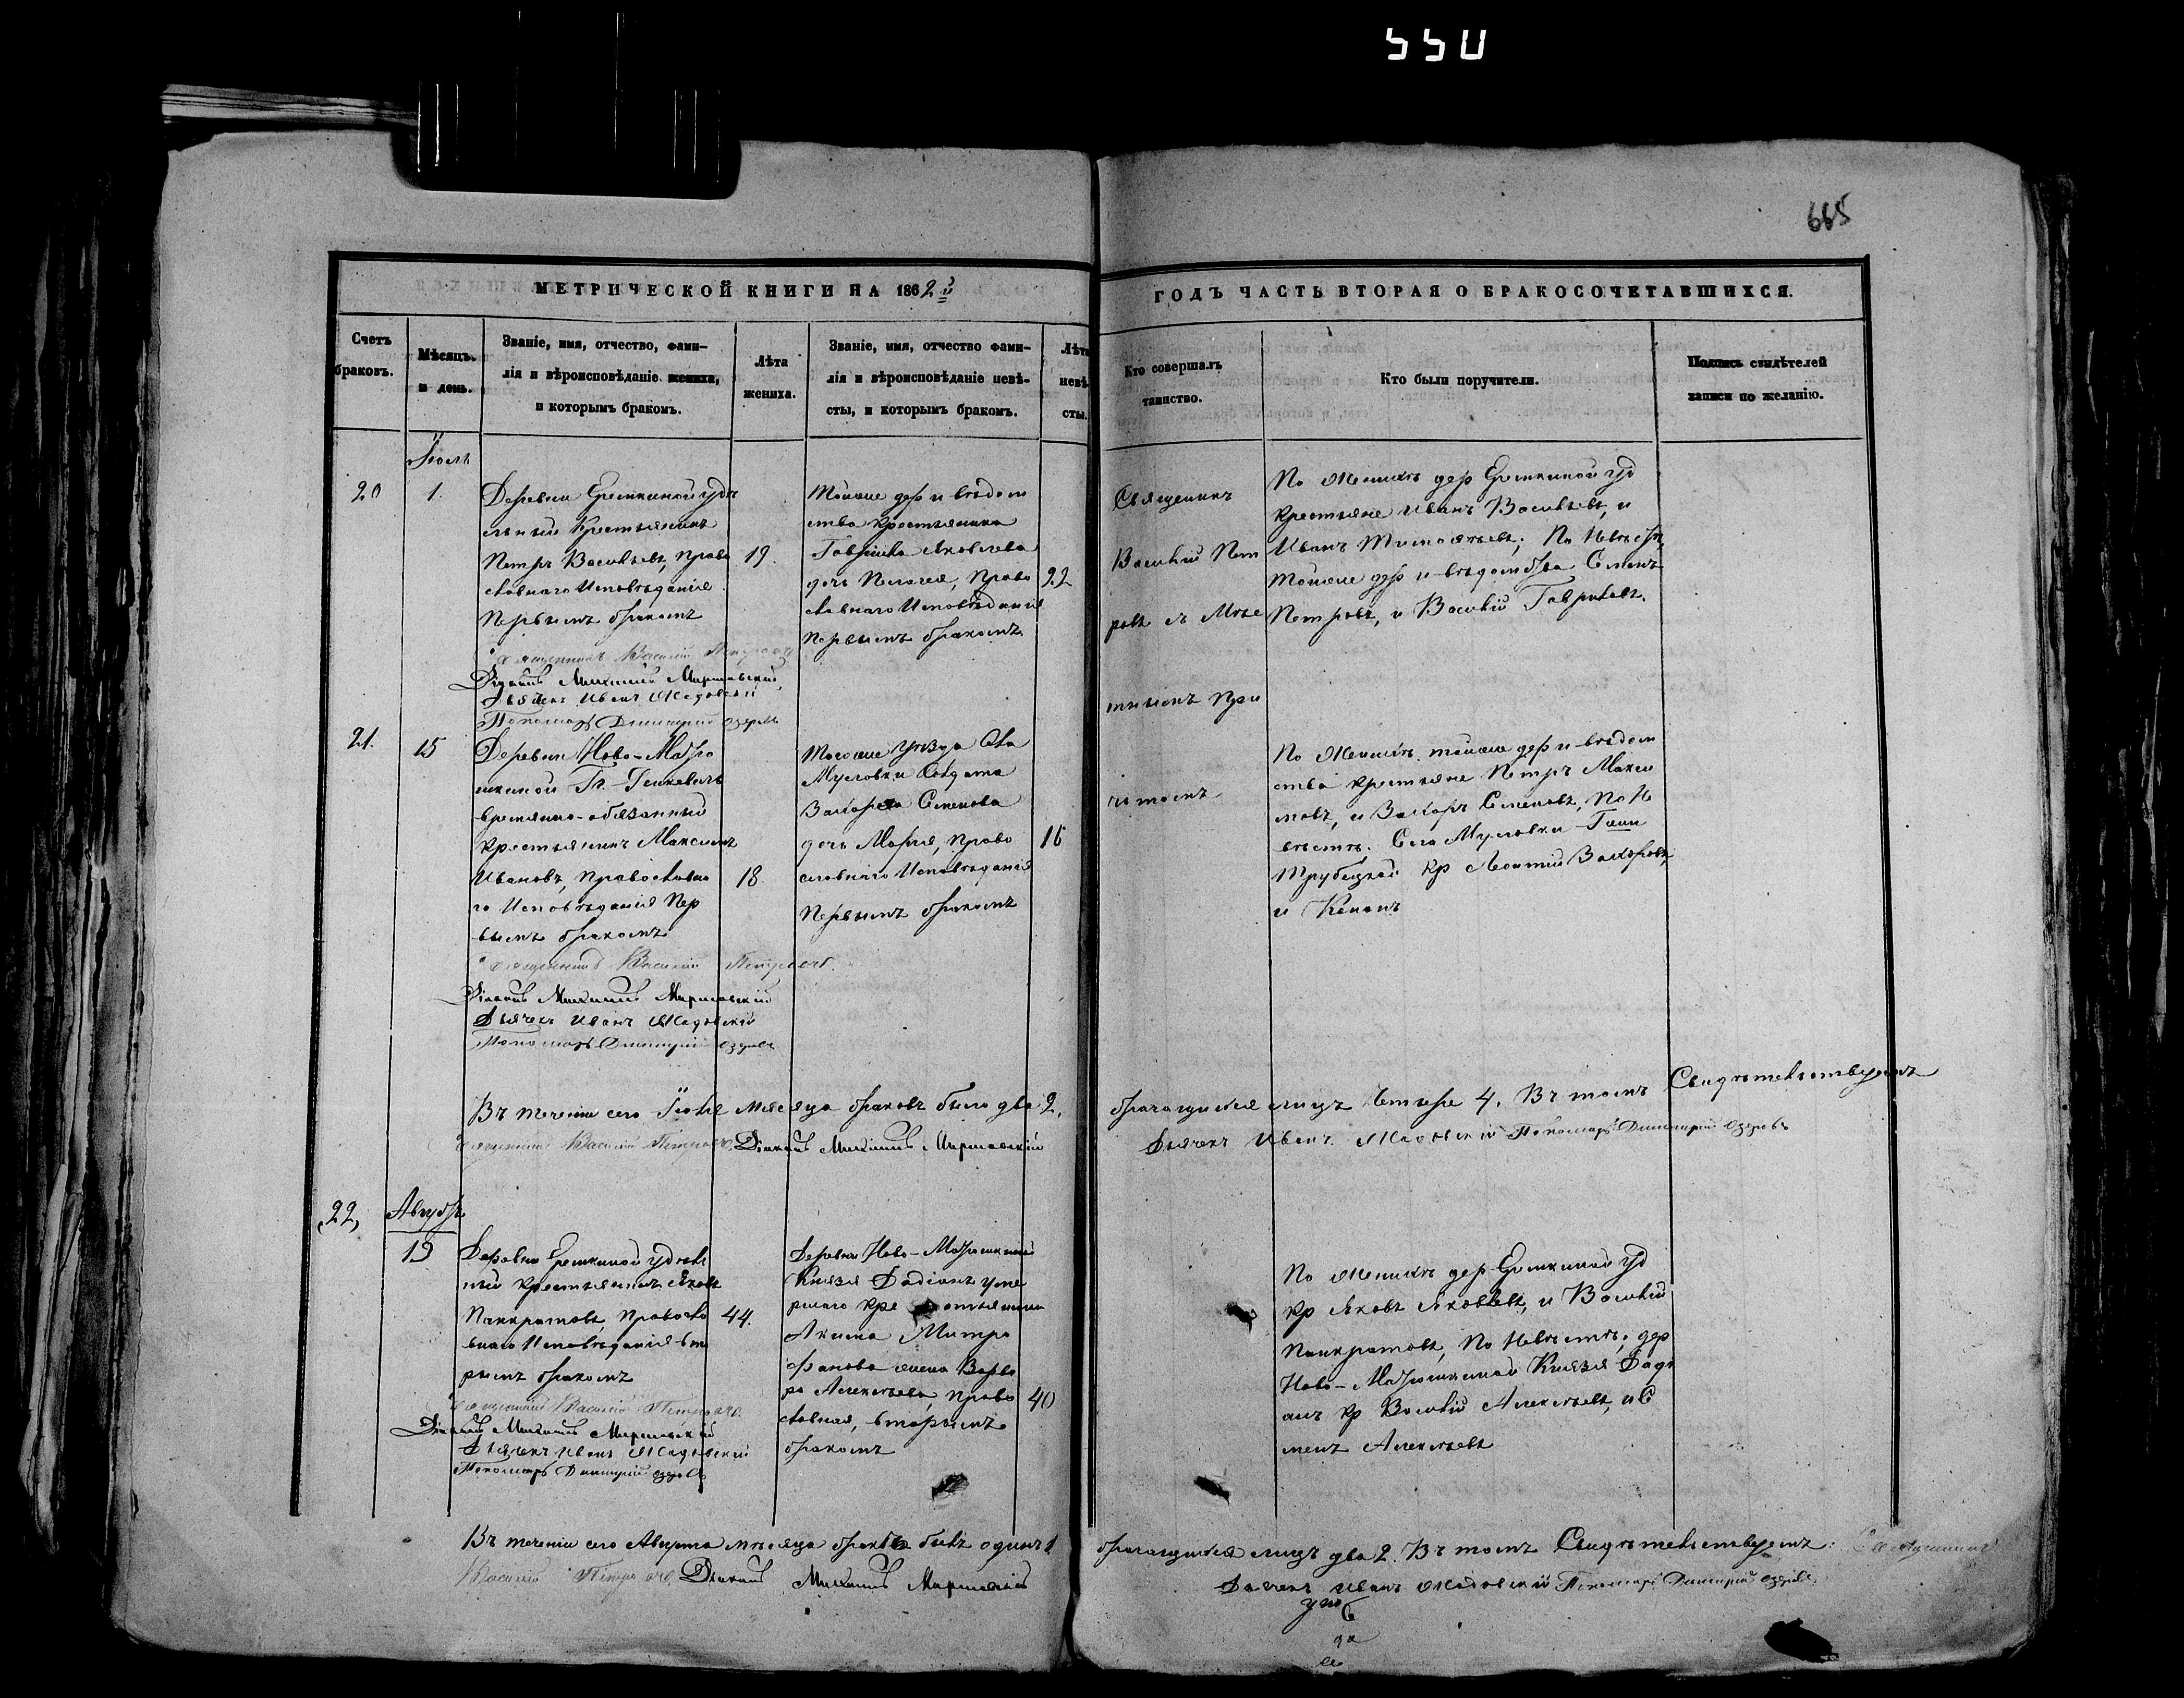 665
МЕТРИЧЕСКОЙ КНИГИ НА 1862й
ГОДЪ ЧАСТЬ ВТОРАЯ О БРАКОСОЧЕТАВШИХСЯ.
Счетъ
браковъ.
Мѣсяцъ
и день.
Званіе, имя, отчество, фами-
лія и вѣроисповѣданіе жениха,
и которымъ бракомъ.
Лѣта
жениха.
Званіе, имя, отчество фами-
лія и вѣроисповѣданіе невѣ-
сты, и которымъ бракомъ.
Лѣта
невѣ
сты.
Кто совершалъ
таинство.
Кто были поручители.
Подпись свидѣтелей
записи по желанію.
20
1.
Деревни Еремкиной удѣ
льный Крестьянинъ
Петръ Васильевъ, Право
славнаго Исповѣданія
Первымъ бракомъ
19.
Тойже дер и вѣдом
ства крестьянина
Гаврила Яковлева
дочь Пелагея, Право
славнаго Исповѣданія
Первымъ бракомъ
22
Священникъ
Василій Пет
ровъ съ
По Женихѣ дер Еремкиной уд
крестьяне Иванъ Васильевъ, и
Иванъ Тимофѣевъ; По Невѣстѣ,
Тойже дер и вѣдомства Семенъ
Петровъ, и Василій Гавриловъ.
Священникъ Василій Петровъ
Діаконъ Михаилъ
Дьячекъ Иванъ
Пономарь Димитрій Озеровъ
21.
15
Деревни Ново-
временно-обязанный
крестьянинъ Максимъ
Ивановъ, Православна
го Исповѣданія Пер
вымъ бракомъ
18.
Тогоже Уѣзда Села
Мусловки Солдата
Захара Семенова
дочь Марья, Право
славнаго Исповѣданія
Первымъ бракомъ
16
По Женихѣ тойже дер и вѣдом
ства крестьяне Петръ Макси
мовъ, и Захаръ Семеновъ, По Не
вѣстѣ. Села Мусловки
Трубецкой кр Леонтій Захаровъ,
и
Священникъ Василій Петровъ.
Діаконъ Михаилъ
Дьячекъ Иванъ
Пономарь Димитрій Озеровъ
Въ теченіи сего Іюля мѣсяца браковъ было два 2,
брачащихся лицъ четыре 4. Въ томъ Свидѣтельствуемъ
Священникъ Василій Петровъ. Діаконъ Михаилъ
Дьячекъ Иванъ Пономарь Димитрій Озеровъ
22,
Августъ
19
Деревни Еремкиной удѣль
ный крестьянинъ Яковъ
Панкратовъ, Правосла
внаго Исповѣданія вто
рымъ бракомъ
44.
Деревни Ново-
Князя Дадіанъ уме
ршаго крестьянина
Акима Митро
фанова жена Варва
ра Алексѣева, Право
славная, вторымъ
бракомъ
40
По Женихѣ дер Еремкиной уд
кр Яковъ Яковлевъ, и Василій
Панкратовъ, По Невѣстѣ, дер
Ново- Князя Дади
анъ кр Василій Алексѣевъ, и Се
менъ Алексѣевъ
Священникъ Василій Петровъ.
Діаконъ Михаилъ
Дьячекъ Иванъ
Пономарь Димитрій Озеровъ
Въ теченіи сего Августа мѣсяца браковъ былъ одинъ 1
брачащихся лицъ два 2. Въ томъ Свидѣтельствуемъ: Священникъ
Василій Петровъ, Діаконъ Михаилъ
Дьячекъ Иванъ Пономарь Димитрій Озеровъ